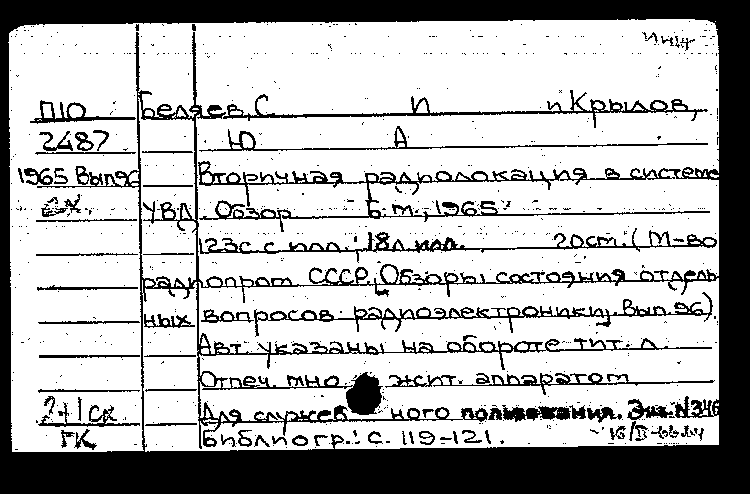 инж
П10 Беляев, С И и Крылов,
2487 Ю А
1965 Вып96 Вторичная радиолокация в системе
УВД. Обзор Б.м., 1965.
123с. с илл.; 18л. илл. 20см. (М-во
радиопром СССР. Обзоры состояния отдель
ных вопросов радиоэлектроники. Вып. 96).
Авт. указаны на обороте тит. л.
Отпеч. мно жит. аппаратом
2+1ск Для служеб ного пользования. Экз. N346
ГК Библиогр.: с. 119-121.